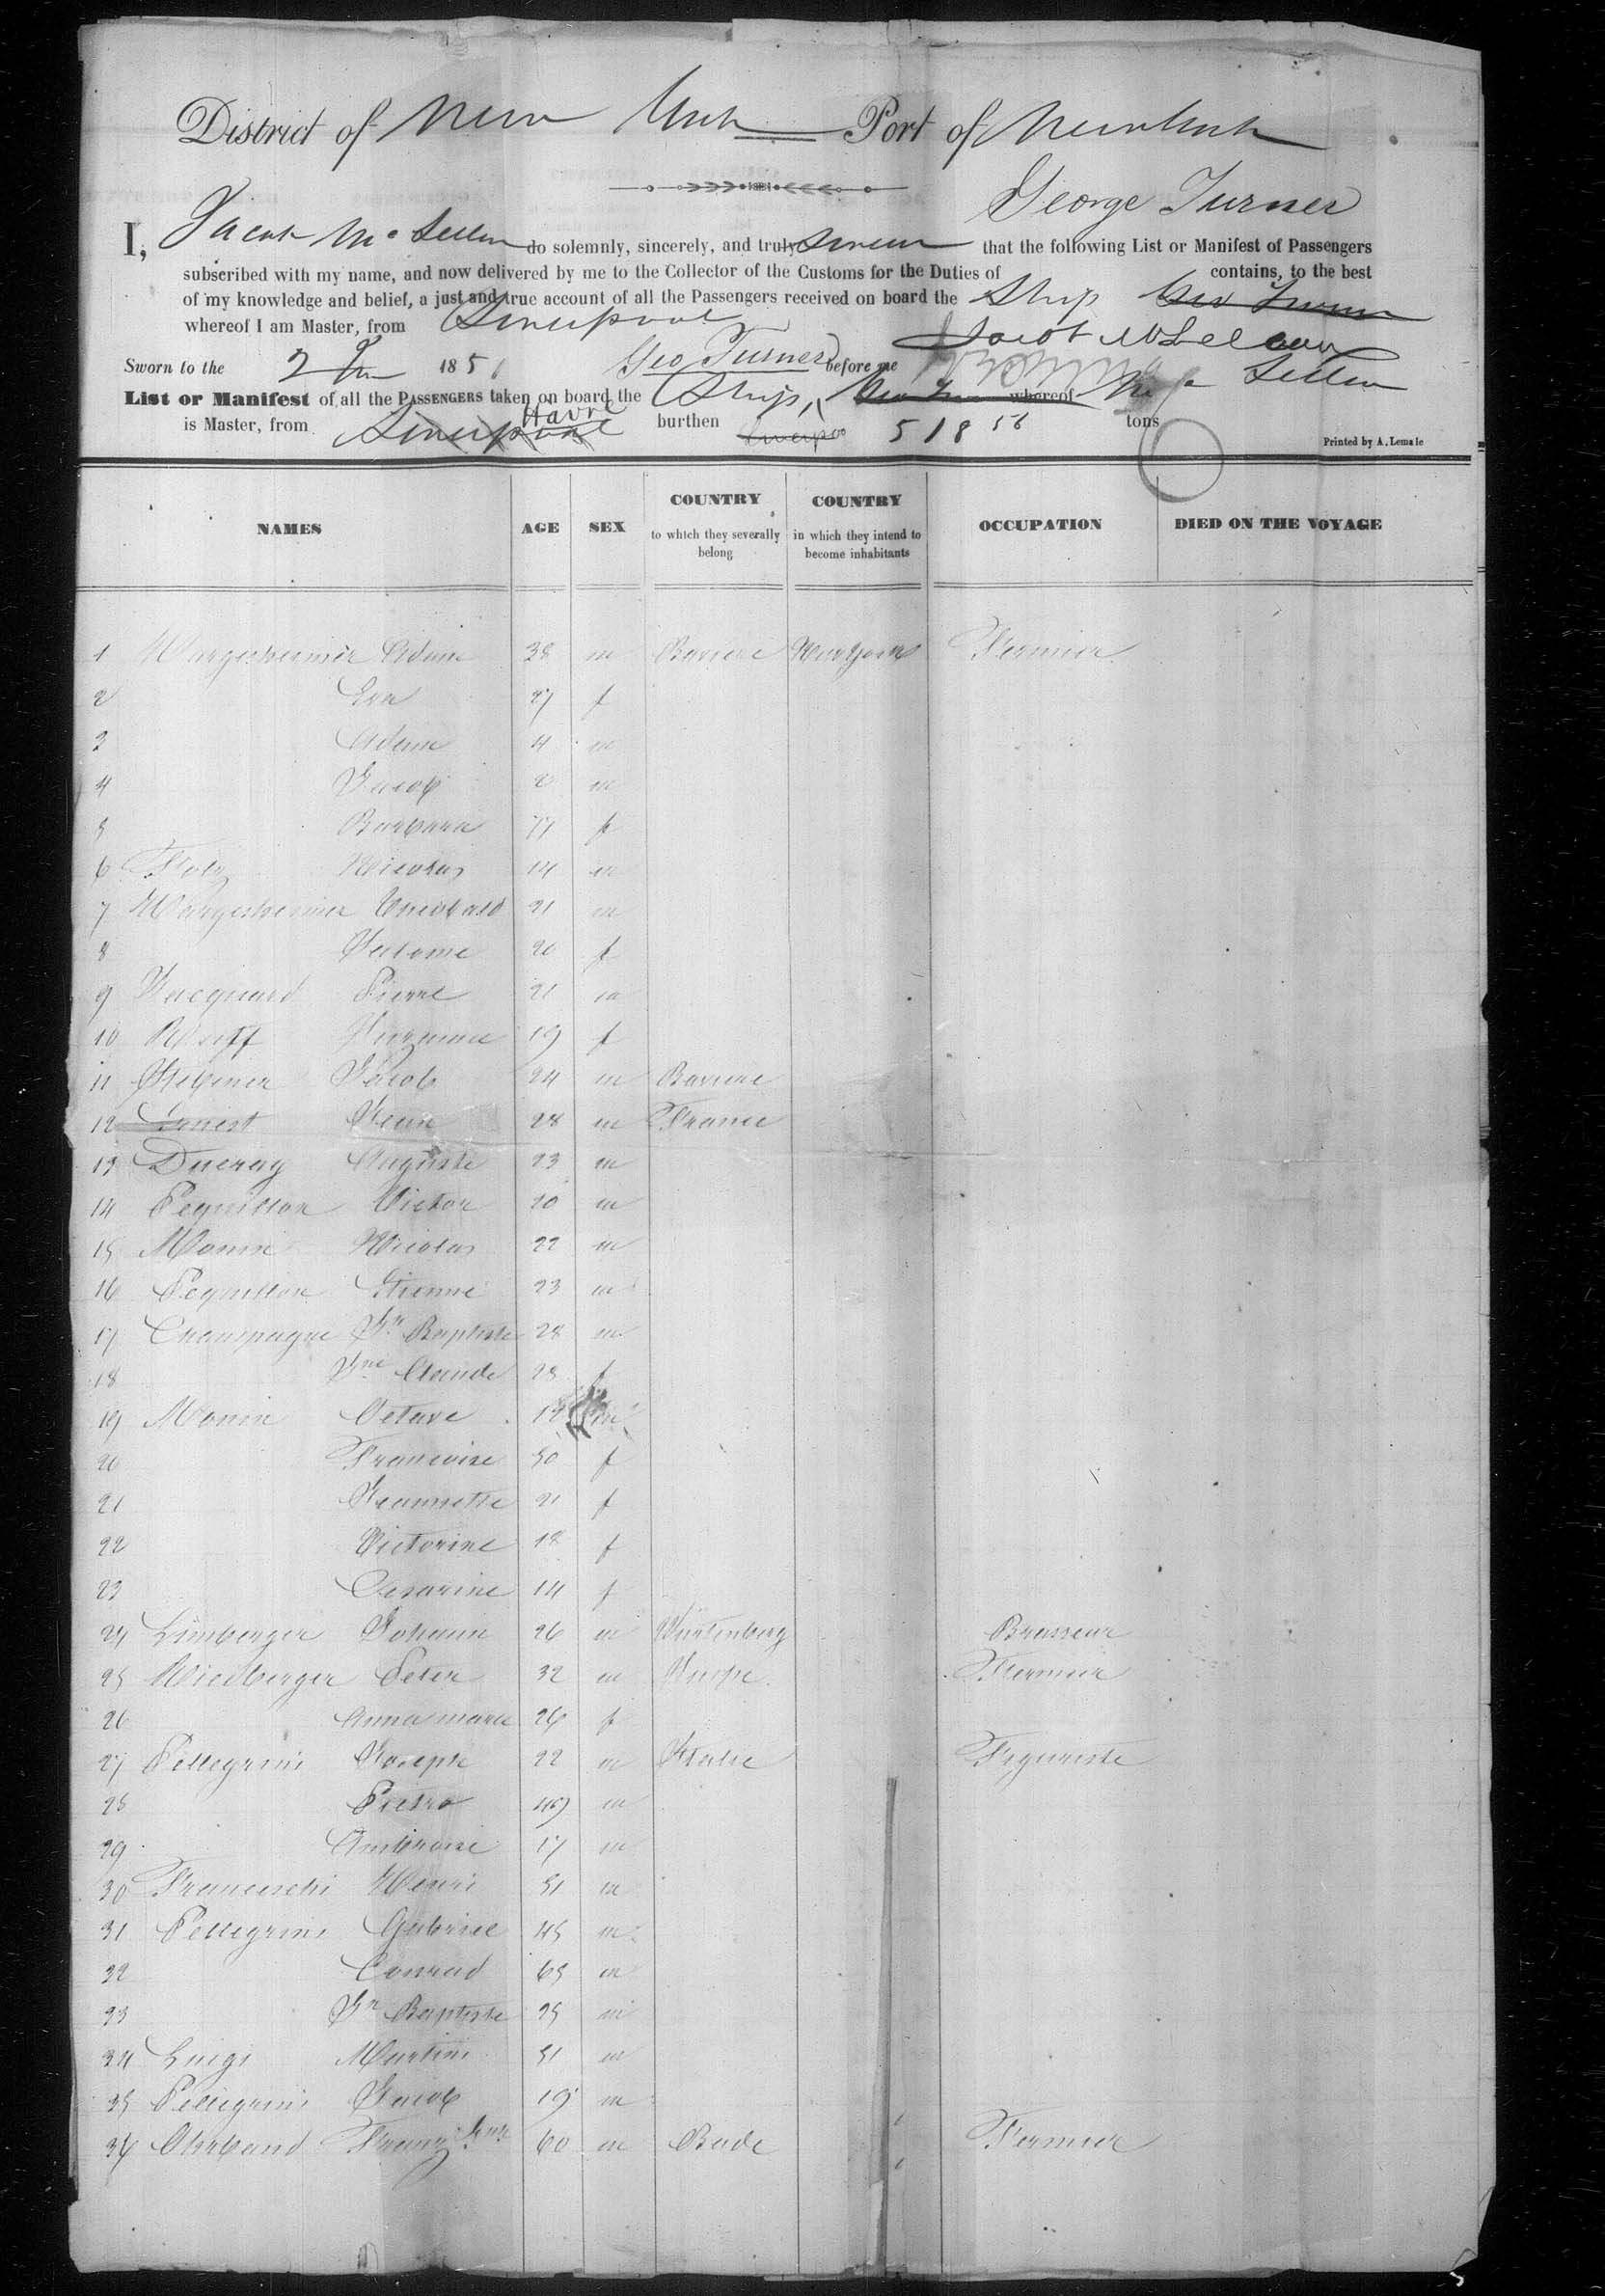 District of New York Port of New York
George Turner
I, Jacob McLellan do solemnly, sincerely, and truly swear that the following List or Manifest of Passengers
subscribed with my name, and now delivered by me to the Collector of the Customs for the Duties of contains, to the best
of my knowledge and belief, a just and true account of all the Passengers received on board the Ship Geo Turner
whereof I am Master, from Liverpool
Jacob McLellan
Sworn to the 2 Jan 1851 Geo Turner before me
List or Manifest of all the PASSENGERS taken on board the Ship, Geo Turner whereof McLellan
is Master, from Liverpool Havre burthen Liverpoo 518 56 tons
Printed by A. Lemale
NAMES AGE SEX COUNTRY to which they severally belong COUNTRY in which they intend to become inhabitants OCCUPATION DIED ON THE VOYAGE
1 Adam 38 m Baviere New York Fermier
2 Eva 27 f
3 Adam 4 m
4 Jacob 2 m
5 Barbara f
6 Nicolas 14 m
7 21 m
8 Salome 20 f
9 Jacquard Pierre 21 m
10 19 f
11 Jacob 24 m Baviere
12 Ernest Jean 28 m France
13 Ducray Auguste 23 m
14 Pequillon Victor 20 m
15 Monin Nicolas 22 m
16 Pequillon Etienne 23 m
17 Champagne Jn Baptiste 28 m
18 Jne Claude 23 f
19 Monin Octave m
20 Francoise 50 f
21 Jeannette 21 f
22 Victorine 18 f
23 Cesarine 14 f
24 Limberger Johann 26 m Würtenberg Brasseur
25 Niedberger Peter 32 m Fermier
26 Anna maria 26 f
27 Pellegrini Joseph 22 m Italie Figuriste
28 Pietro 49 m
29 Ambroise 17 m
30 Franceschi Henri 51 m
31 Pellegrini Gabriel 45 m
32 Conrad 65 m
33 Jn Baptiste 25 m
34 Luigi Martini 51 m
35 Pellegrini Jacob 19 m
36 Franz 60 m Bade Fermier